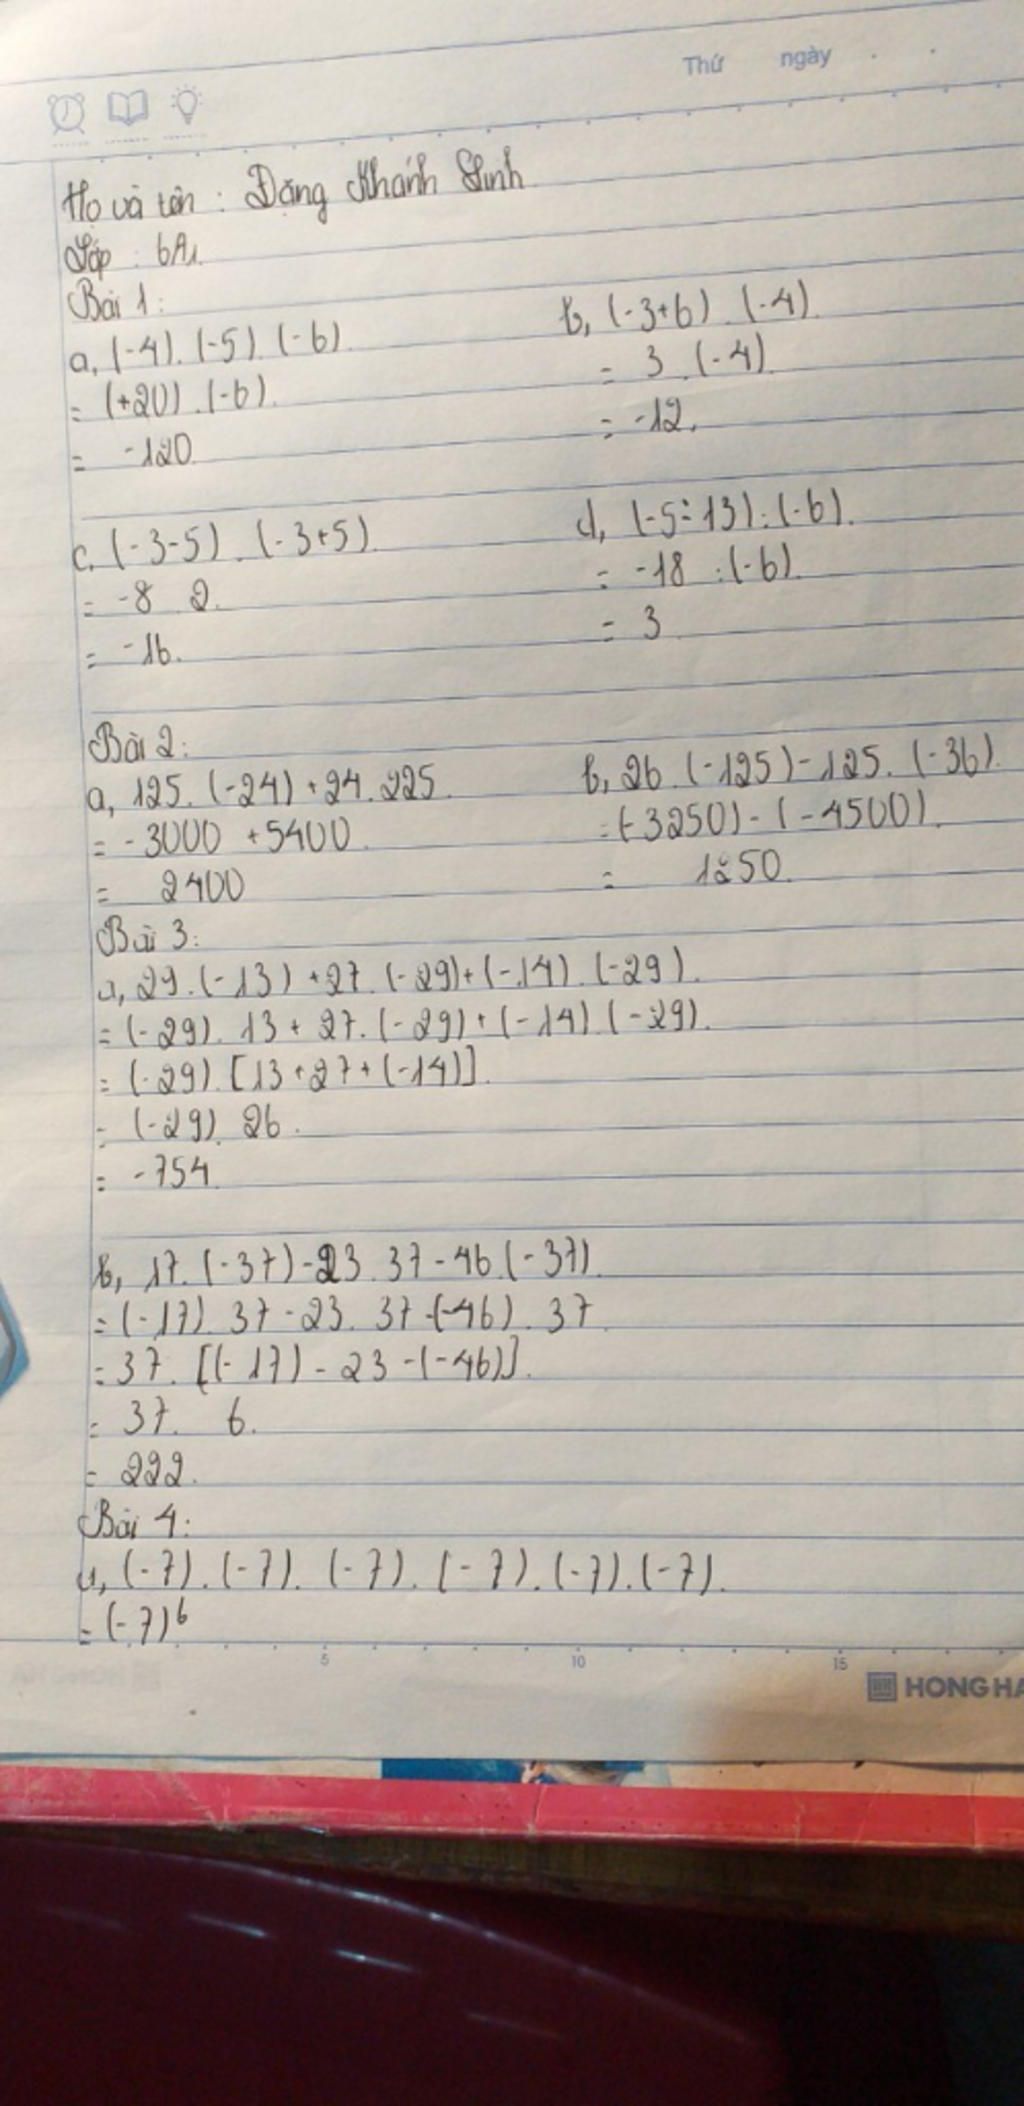 Thứ ngày
Họ và tên : Đặng Khánh Linh
Lớp : 6A1
Bài 1:
a, (-4). (-5). (-6).
= (+20) . (-6).
= -120
b, (-3+6) . (-4)
= 3 . (-4)
= -12.
c, (-3-5) . (-3+5)
= -8 2.
= -16.
d, (-5-13) : (-6).
= -18 : (-6)
= 3
Bài 2:
a, 125. (-24) + 24. 225
= -3000 + 5400
= 2400
b, 26 . (-125) - 125. (-36)
= (-3250) - (-4500).
= 1250
Bài 3:
a, 29. (-13) + 27. (-29) + (-14). (-29).
= (-29). 13 + 27. (-29) + (-14). (-29).
= (-29). [13 + 27 + (-14)].
= (-29). 26.
= -754
b, 17. (-37) - 23. 37 - 46. (-37)
= (-17). 37 - 23. 37 -(-46) . 37
= 37. [(-17) - 23 - (-46)].
= 37. 6.
= 222.
Bài 4:
a, (-7). (-7). (-7). (-7). (-7). (-7).
= (-7)⁶
5 10 15
HONG HA